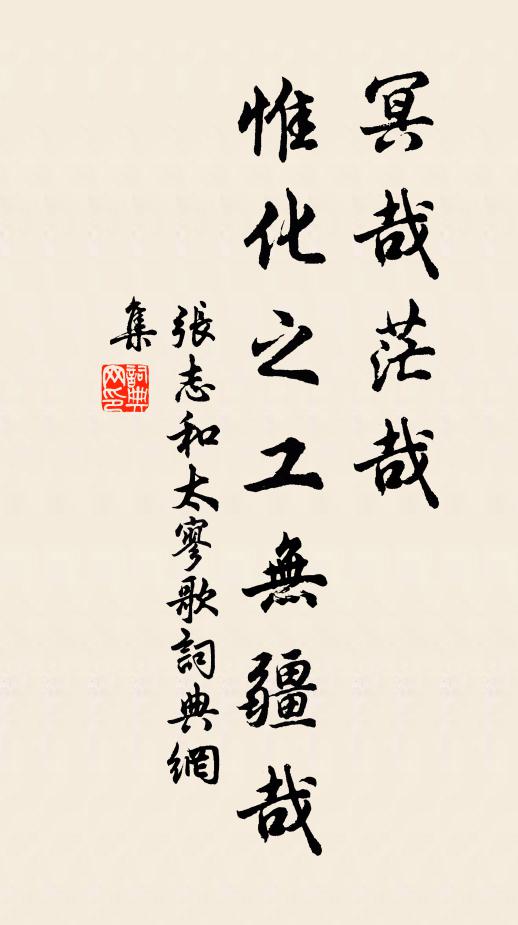 冥哉茫哉
惟化之工無疆哉
張志和太寥歌詞典網
集
詞典网印